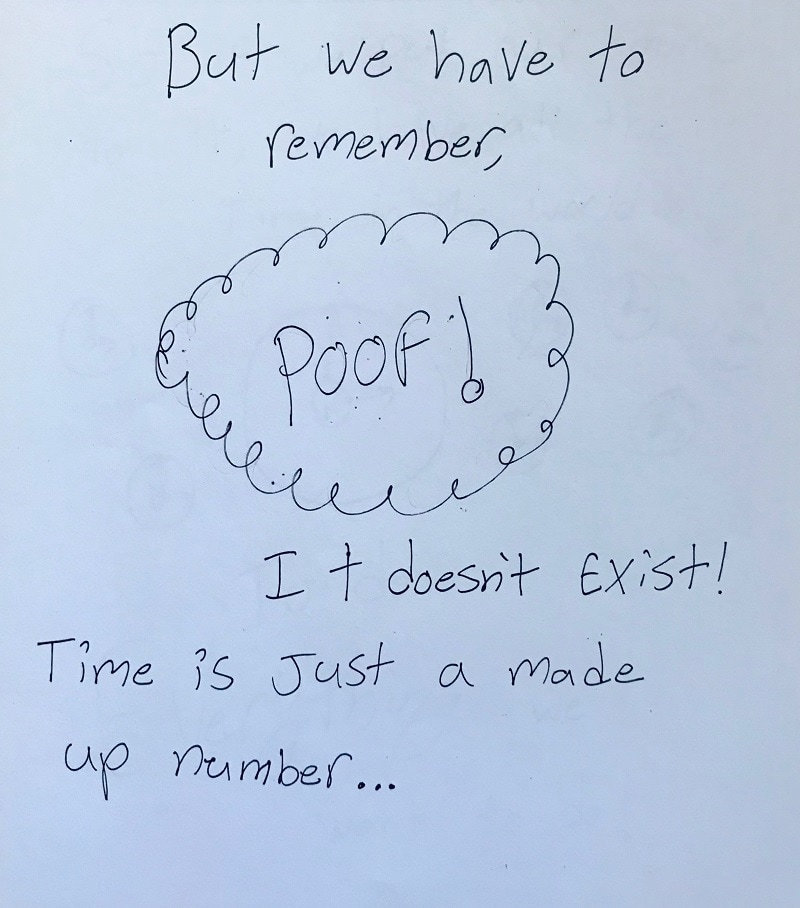 But we have to
remember,
POOF!
It doesn't Exist!
Time is Just a made
up number...